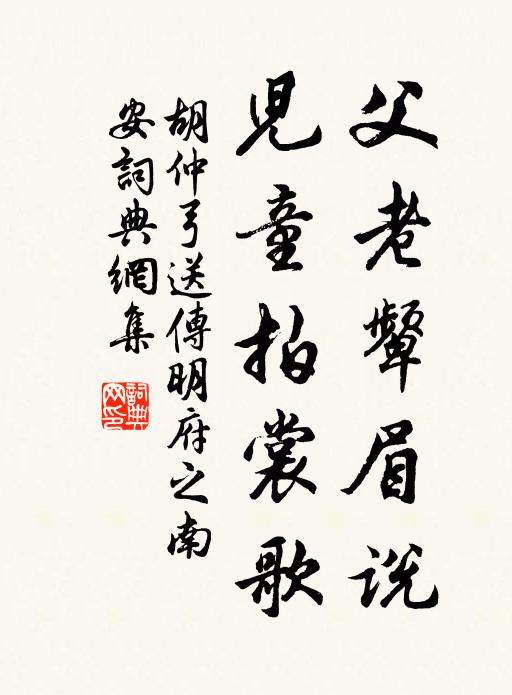 父老顰眉說
兒童拍裳歌
胡仲弓送傅明府之南
安詞典網集
詞典網印